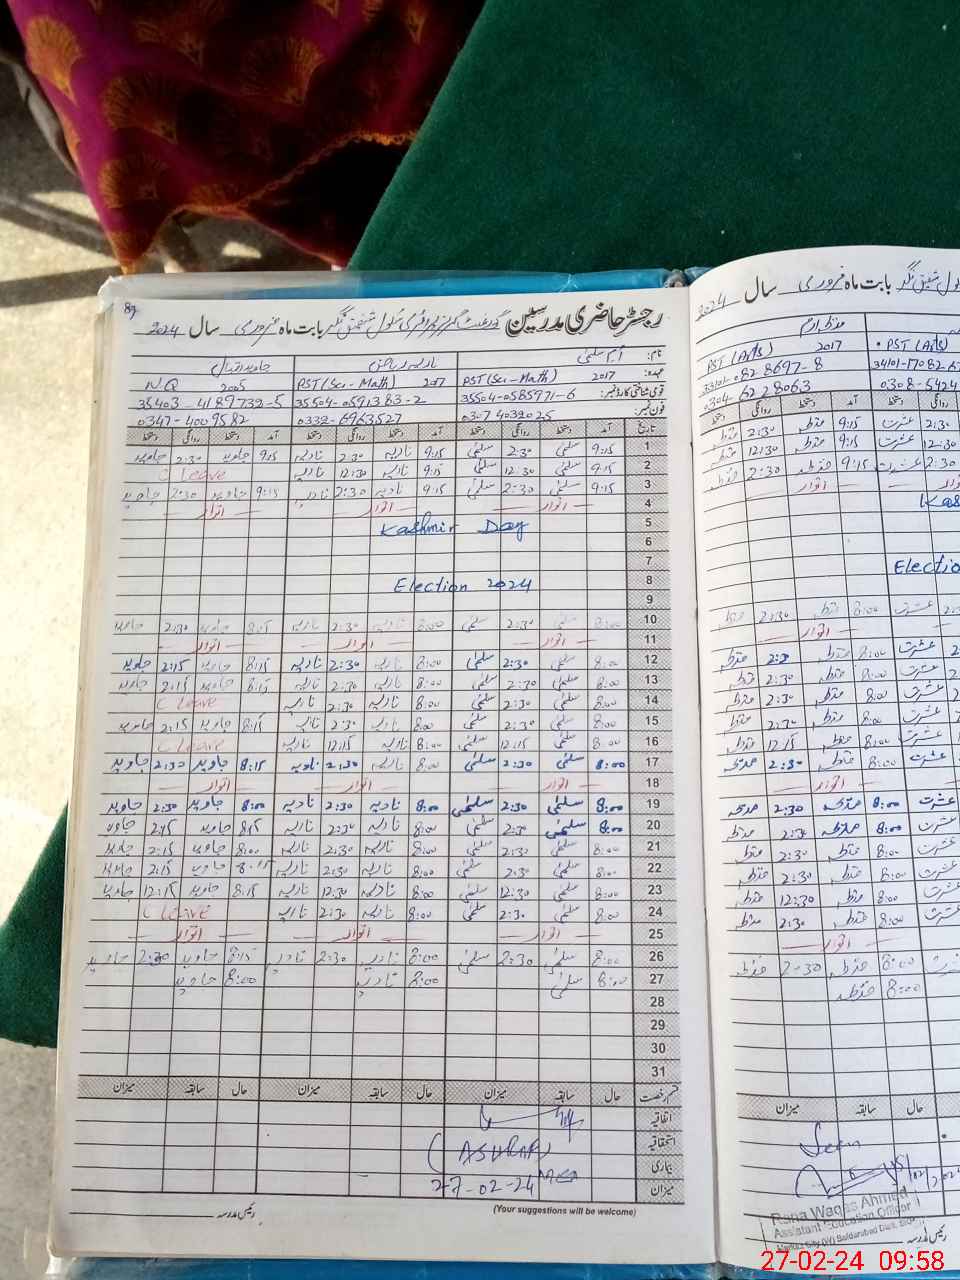 89
رجسٹر حاضری مدرسین گورنمنٹ گرلز پرائمری سکول شفیق نگر بابت ماہ فروری سال 2024
نام: ام سلمیٰ نادیہ ریاض جاوید اقبال
عہدہ: PST (Sci-Math) 2017 PST (Sci-Math) 2017 N.Q 2005
قومی شناختی کارڈ نمبر: 35504-0585971-6 35504-0591383-2 35403-4189732-5
فون نمبر: 0307 4032025 0332-6963527 0347-4009582
تاریخ آمد دستخط روانگی دستخط آمد دستخط روانگی دستخط آمد دستخط روانگی دستخط
1 9:15 سلمیٰ 2:30 سلمیٰ 9:15 نادیہ 2:30 نادیہ 9:15 جاوید 2:30 جاوید
2 9:15 سلمیٰ 12:30 سلمیٰ 9:15 نادیہ 12:30 نادیہ C Leave
3 9:15 سلمیٰ 2:30 سلمیٰ 9:15 نادیہ 2:30 نادیہ 9:15 جاوید 2:30 جاوید
4 اتوار اتوار اتوار
5 Kashmir Day
6
7
8 Election 2024
9
10 8:00 سلمیٰ 2:30 سلمیٰ 8:00 نادیہ 2:30 نادیہ 8:15 جاوید 2:30 جاوید
11 اتوار اتوار اتوار
12 8:00 سلمیٰ 2:30 سلمیٰ 8:00 نادیہ 2:30 نادیہ 8:15 جاوید 2:15 جاوید
13 8:00 سلمیٰ 2:30 سلمیٰ 8:00 نادیہ 2:30 نادیہ 8:15 جاوید 2:15 جاوید
14 8:00 سلمیٰ 2:30 سلمیٰ 8:00 نادیہ 2:30 نادیہ C Leave
15 8:00 سلمیٰ 2:30 سلمیٰ 8:00 نادیہ 2:30 نادیہ 8:15 جاوید 2:15 جاوید
16 8:00 سلمیٰ 12:15 سلمیٰ 8:00 نادیہ 12:15 نادیہ C Leave
17 8:00 سلمیٰ 2:30 سلمیٰ 8:00 نادیہ 2:30 نادیہ 8:15 جاوید 2:30 جاوید
18 اتوار اتوار اتوار
19 8:00 سلمیٰ 2:30 سلمیٰ 8:00 نادیہ 2:30 نادیہ 8:00 جاوید 2:30 جاوید
20 8:00 سلمیٰ 2:30 سلمیٰ 8:00 نادیہ 2:30 نادیہ 8:15 جاوید 2:15 جاوید
21 8:00 سلمیٰ 2:30 سلمیٰ 8:00 نادیہ 2:30 نادیہ 8:00 جاوید 2:15 جاوید
22 8:00 سلمیٰ 2:30 سلمیٰ 8:00 نادیہ 2:30 نادیہ 8:15 جاوید 2:15 جاوید
23 8:00 سلمیٰ 12:30 سلمیٰ 8:00 نادیہ 12:30 نادیہ 8:15 جاوید 12:15 جاوید
24 8:00 سلمیٰ 2:30 سلمیٰ 8:00 نادیہ 2:30 نادیہ C Leave
25 اتوار اتوار اتوار
26 8:00 سلمیٰ 2:30 سلمیٰ 8:00 نادیہ 2:30 نادیہ 8:15 جاوید 2:30 جاوید
27 8:00 سلمیٰ 8:00 نادیہ 8:00 جاوید
28
29
30
31
قسم رخصت حال سابقہ میزان حال سابقہ میزان حال سابقہ میزان
اتفاقیہ
استحقاقیہ (ASHRAF)
بیماری
میزان 27-02-24
(Your suggestions will be welcome)
رئیس مدرسہ
شفیق نگر بابت ماہ فروری سال 2024
PST (Arts) 2017
PST (Arts)
0304-6228063
0308-5424
آمد دستخط روانگی دستخط
9:15 2:30
9:15 12:30
9:15 2:30
اتوار
Electio
8:00 2:30
اتوار
8:00 2:30
8:00 2:30
8:00 2:30
8:00 2:30
8:00 12:15
8:00 2:30
اتوار
8:00 2:30
8:00 2:30
8:00 2:30
8:00 2:30
8:00 12:30
8:00 2:30
اتوار
8:00 2:30
8:00
حال سابقہ میزان
Seen
Rana Waqas Ahmed
Assistant Education Officer
رئیس مدرسہ
27-02-24 09:58